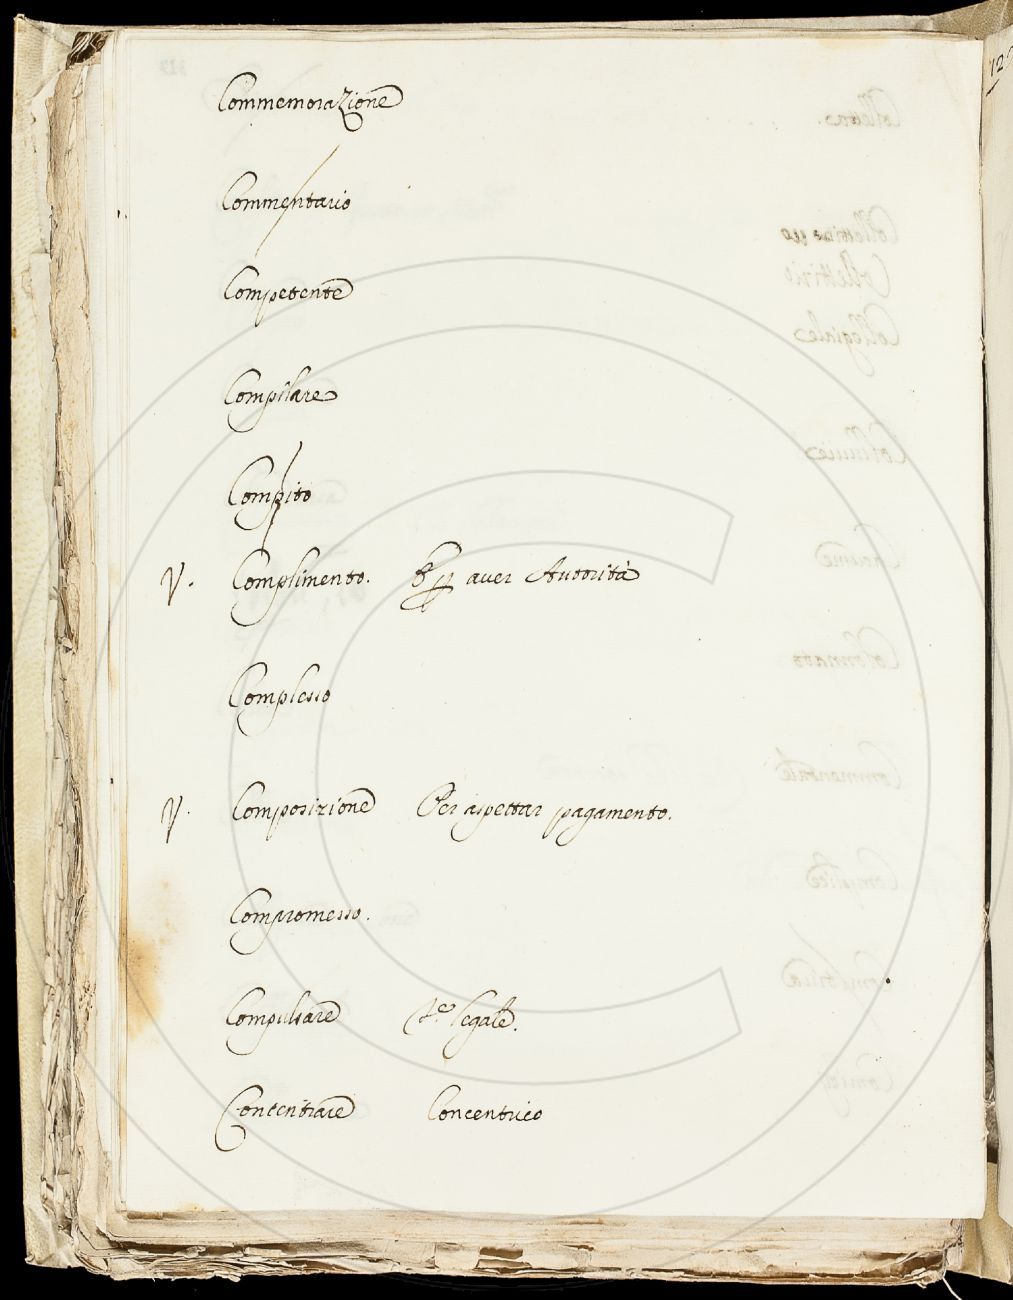 Commemorazione
Commentario
Competente
Compilare
Compito
V. Complimento. aver Autorità
Complesso
V. Composizione Per aspettar pagamento.
Compromesso.
Compulsare legale.
Concentrare Concentrico